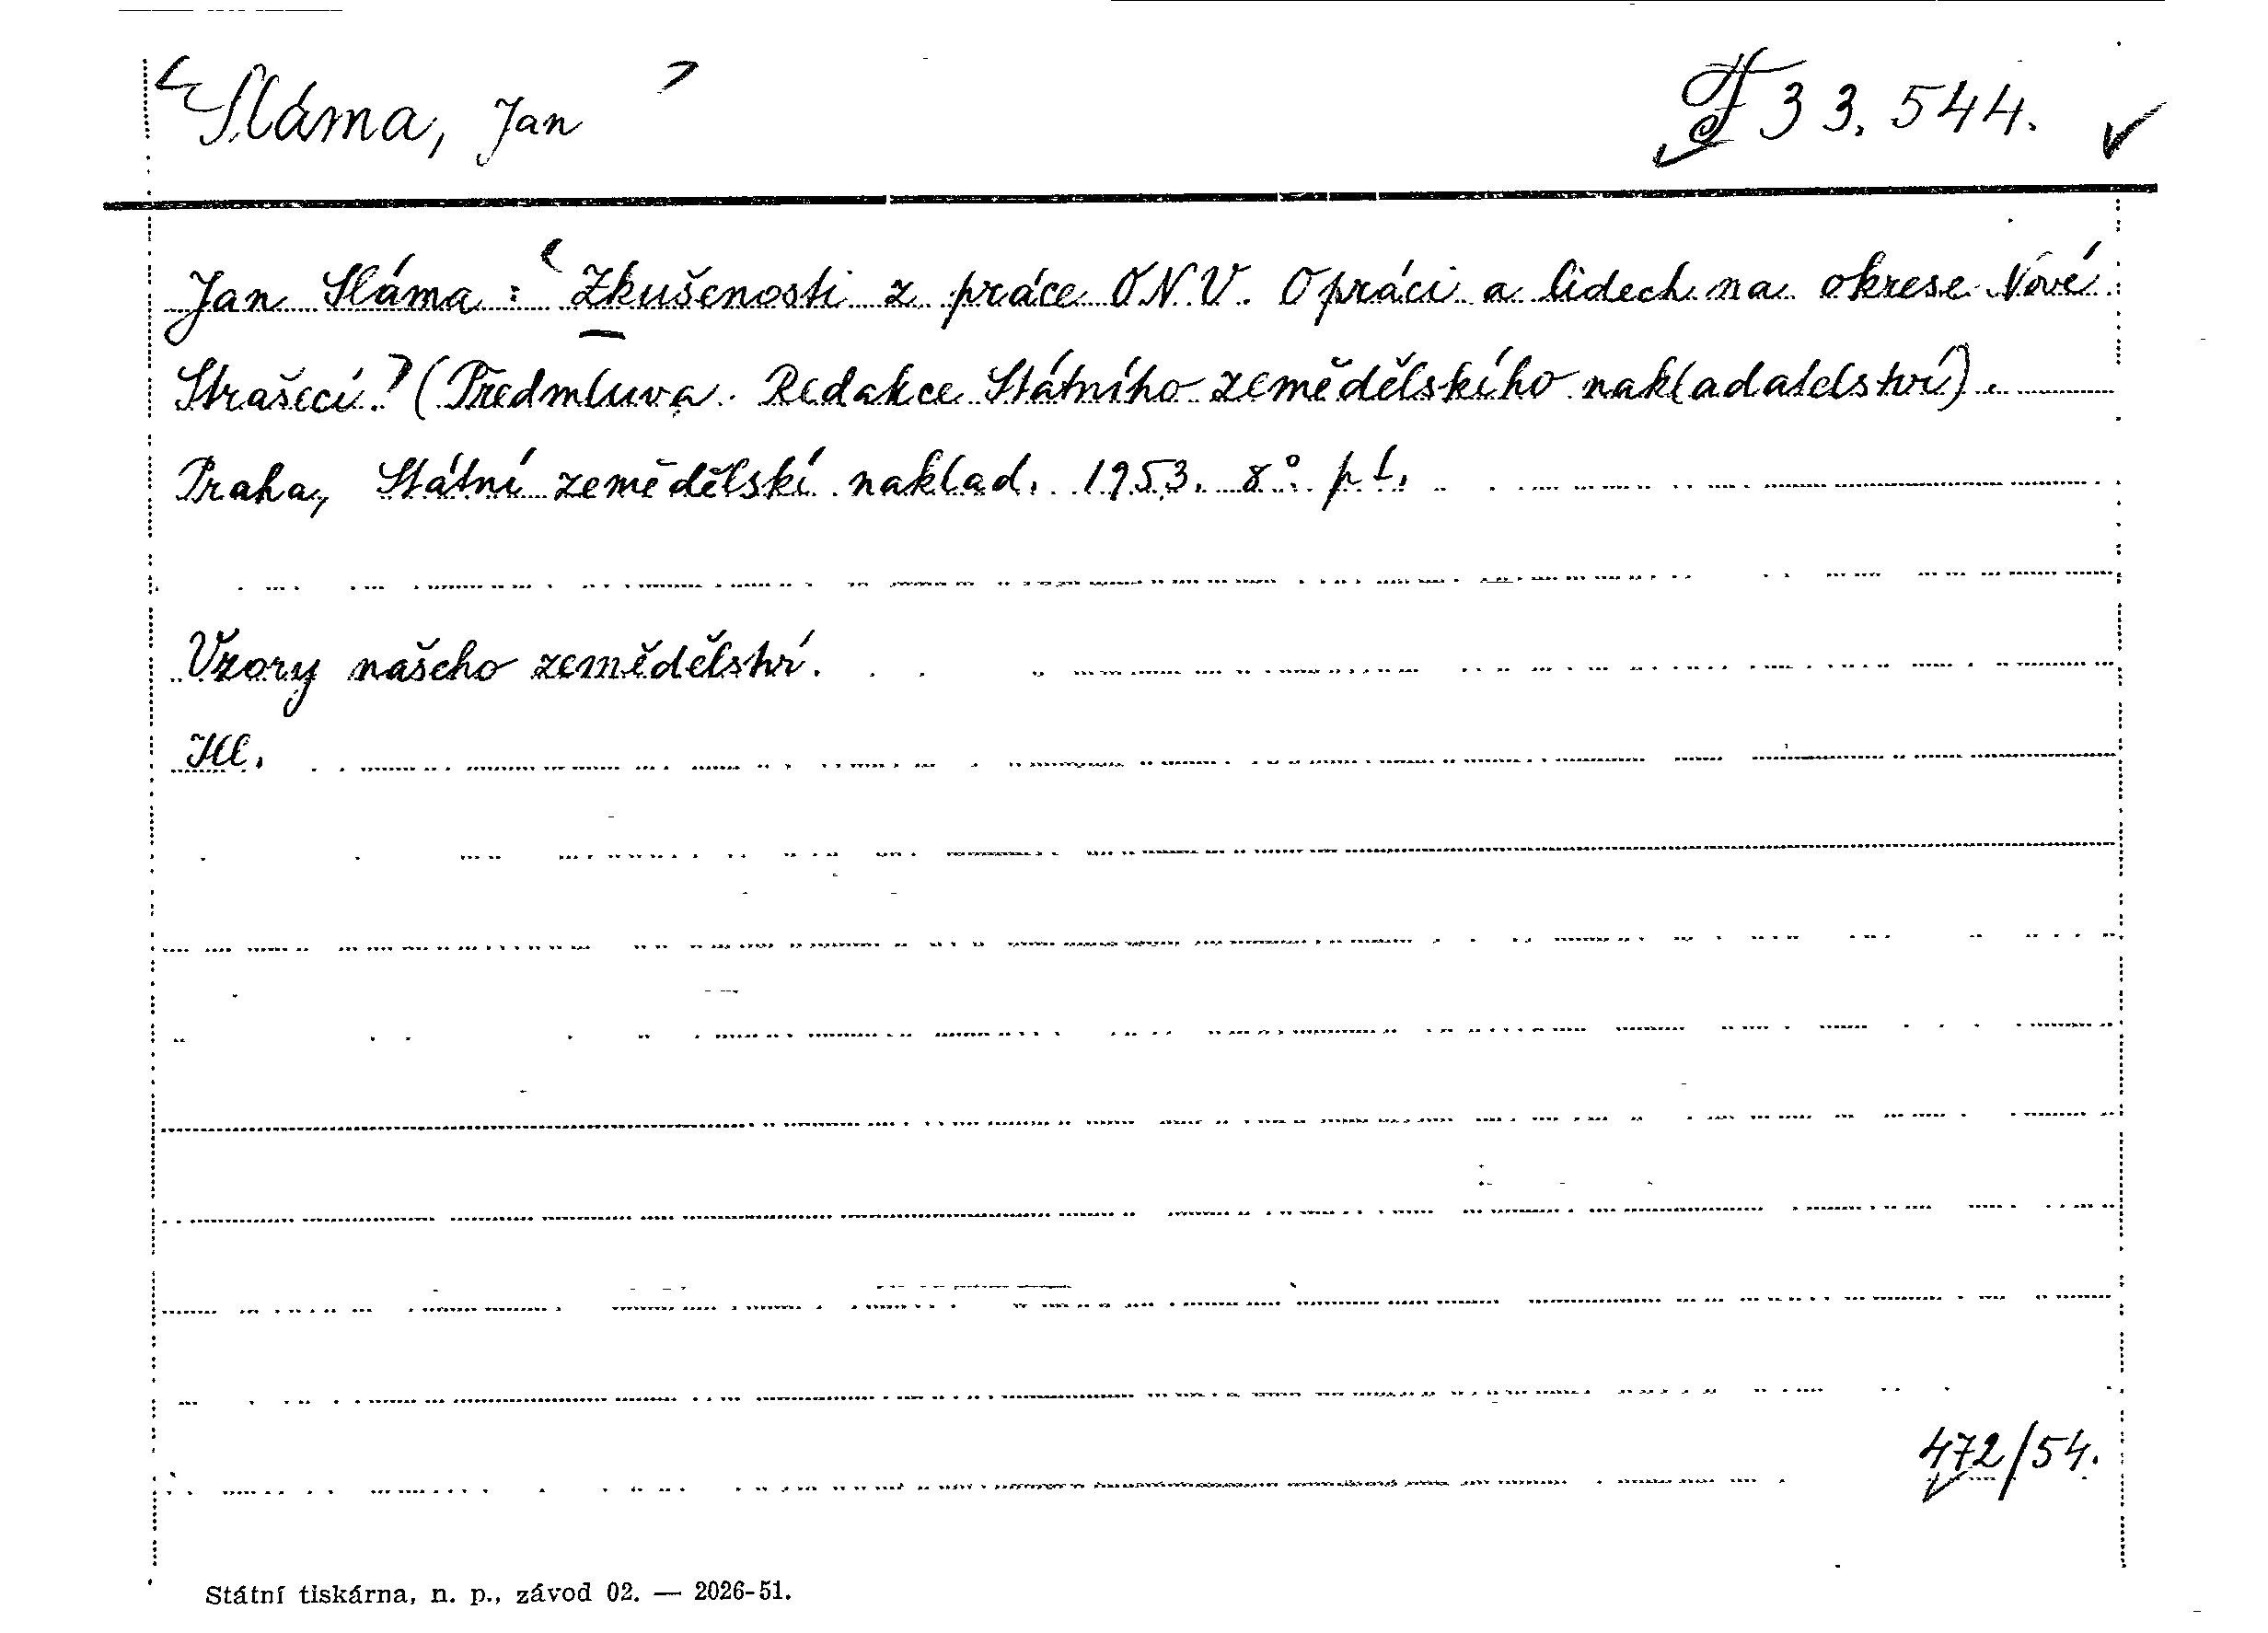 Sláma, Jan
F 33.544.
Jan Sláma: Zkušenosti z práce ONV. O práci a lidech na okrese Nové
Strašecí. (Předmluva. Redakce Státního zemědělského nakladatelství).
Praha, Státní zemědělské naklad. 1953. 8°. př.
Vzory našeho zemědělství.
Ill.
472/54.
Státní tiskárna, n. p., závod 02. — 2026-51.